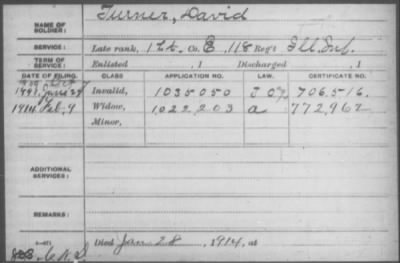 NAME OF SOLDIER: Turner, David
SERVICE: Late rank, 1 Lt. Co. E, 118 Reg't Ill. Inf.
TERM OF SERVICE: Enlisted , 1 Discharged , 1
DATE OF FILING. CLASS APPLICATION NO. LAW. CERTIFICATE NO.
Invalid, 1035050 706.516.
1914 Feb. 9 Widow, 1.022.203 a 772,962
Minor,
ADDITIONAL SERVICES:
REMARKS:
Died Jan 28, 1914, at